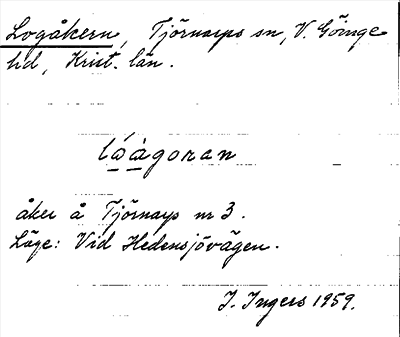 Logåkern, Tjörnarps sn, V. Göinge
hd, Krist. län.
ló̲à̲goran
åker å Tjörnarps nr 3.
Läge: Vid Hedensjövägen.
I. Ingers 1959.